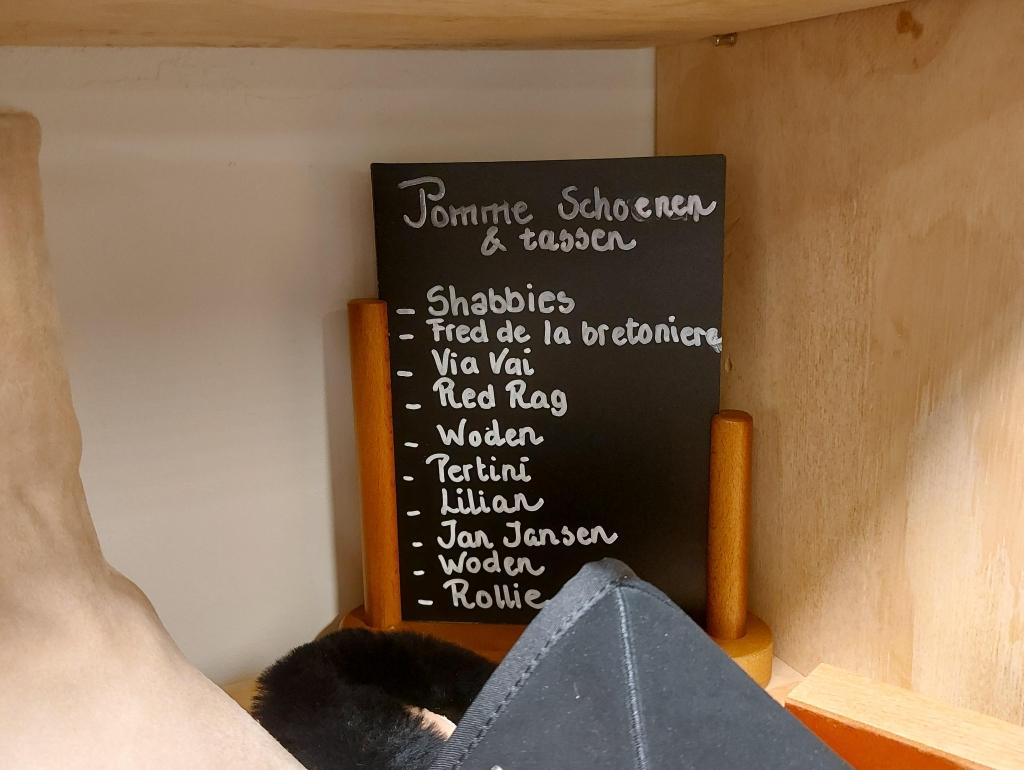 Pomme Schoenen
& tassen
- Shabbies
- Fred de la bretoniere
- Via Vai
- Red Rag
- Woden
- Pertini
- Lilian
- Jan Jansen
- Woden
- Rollie